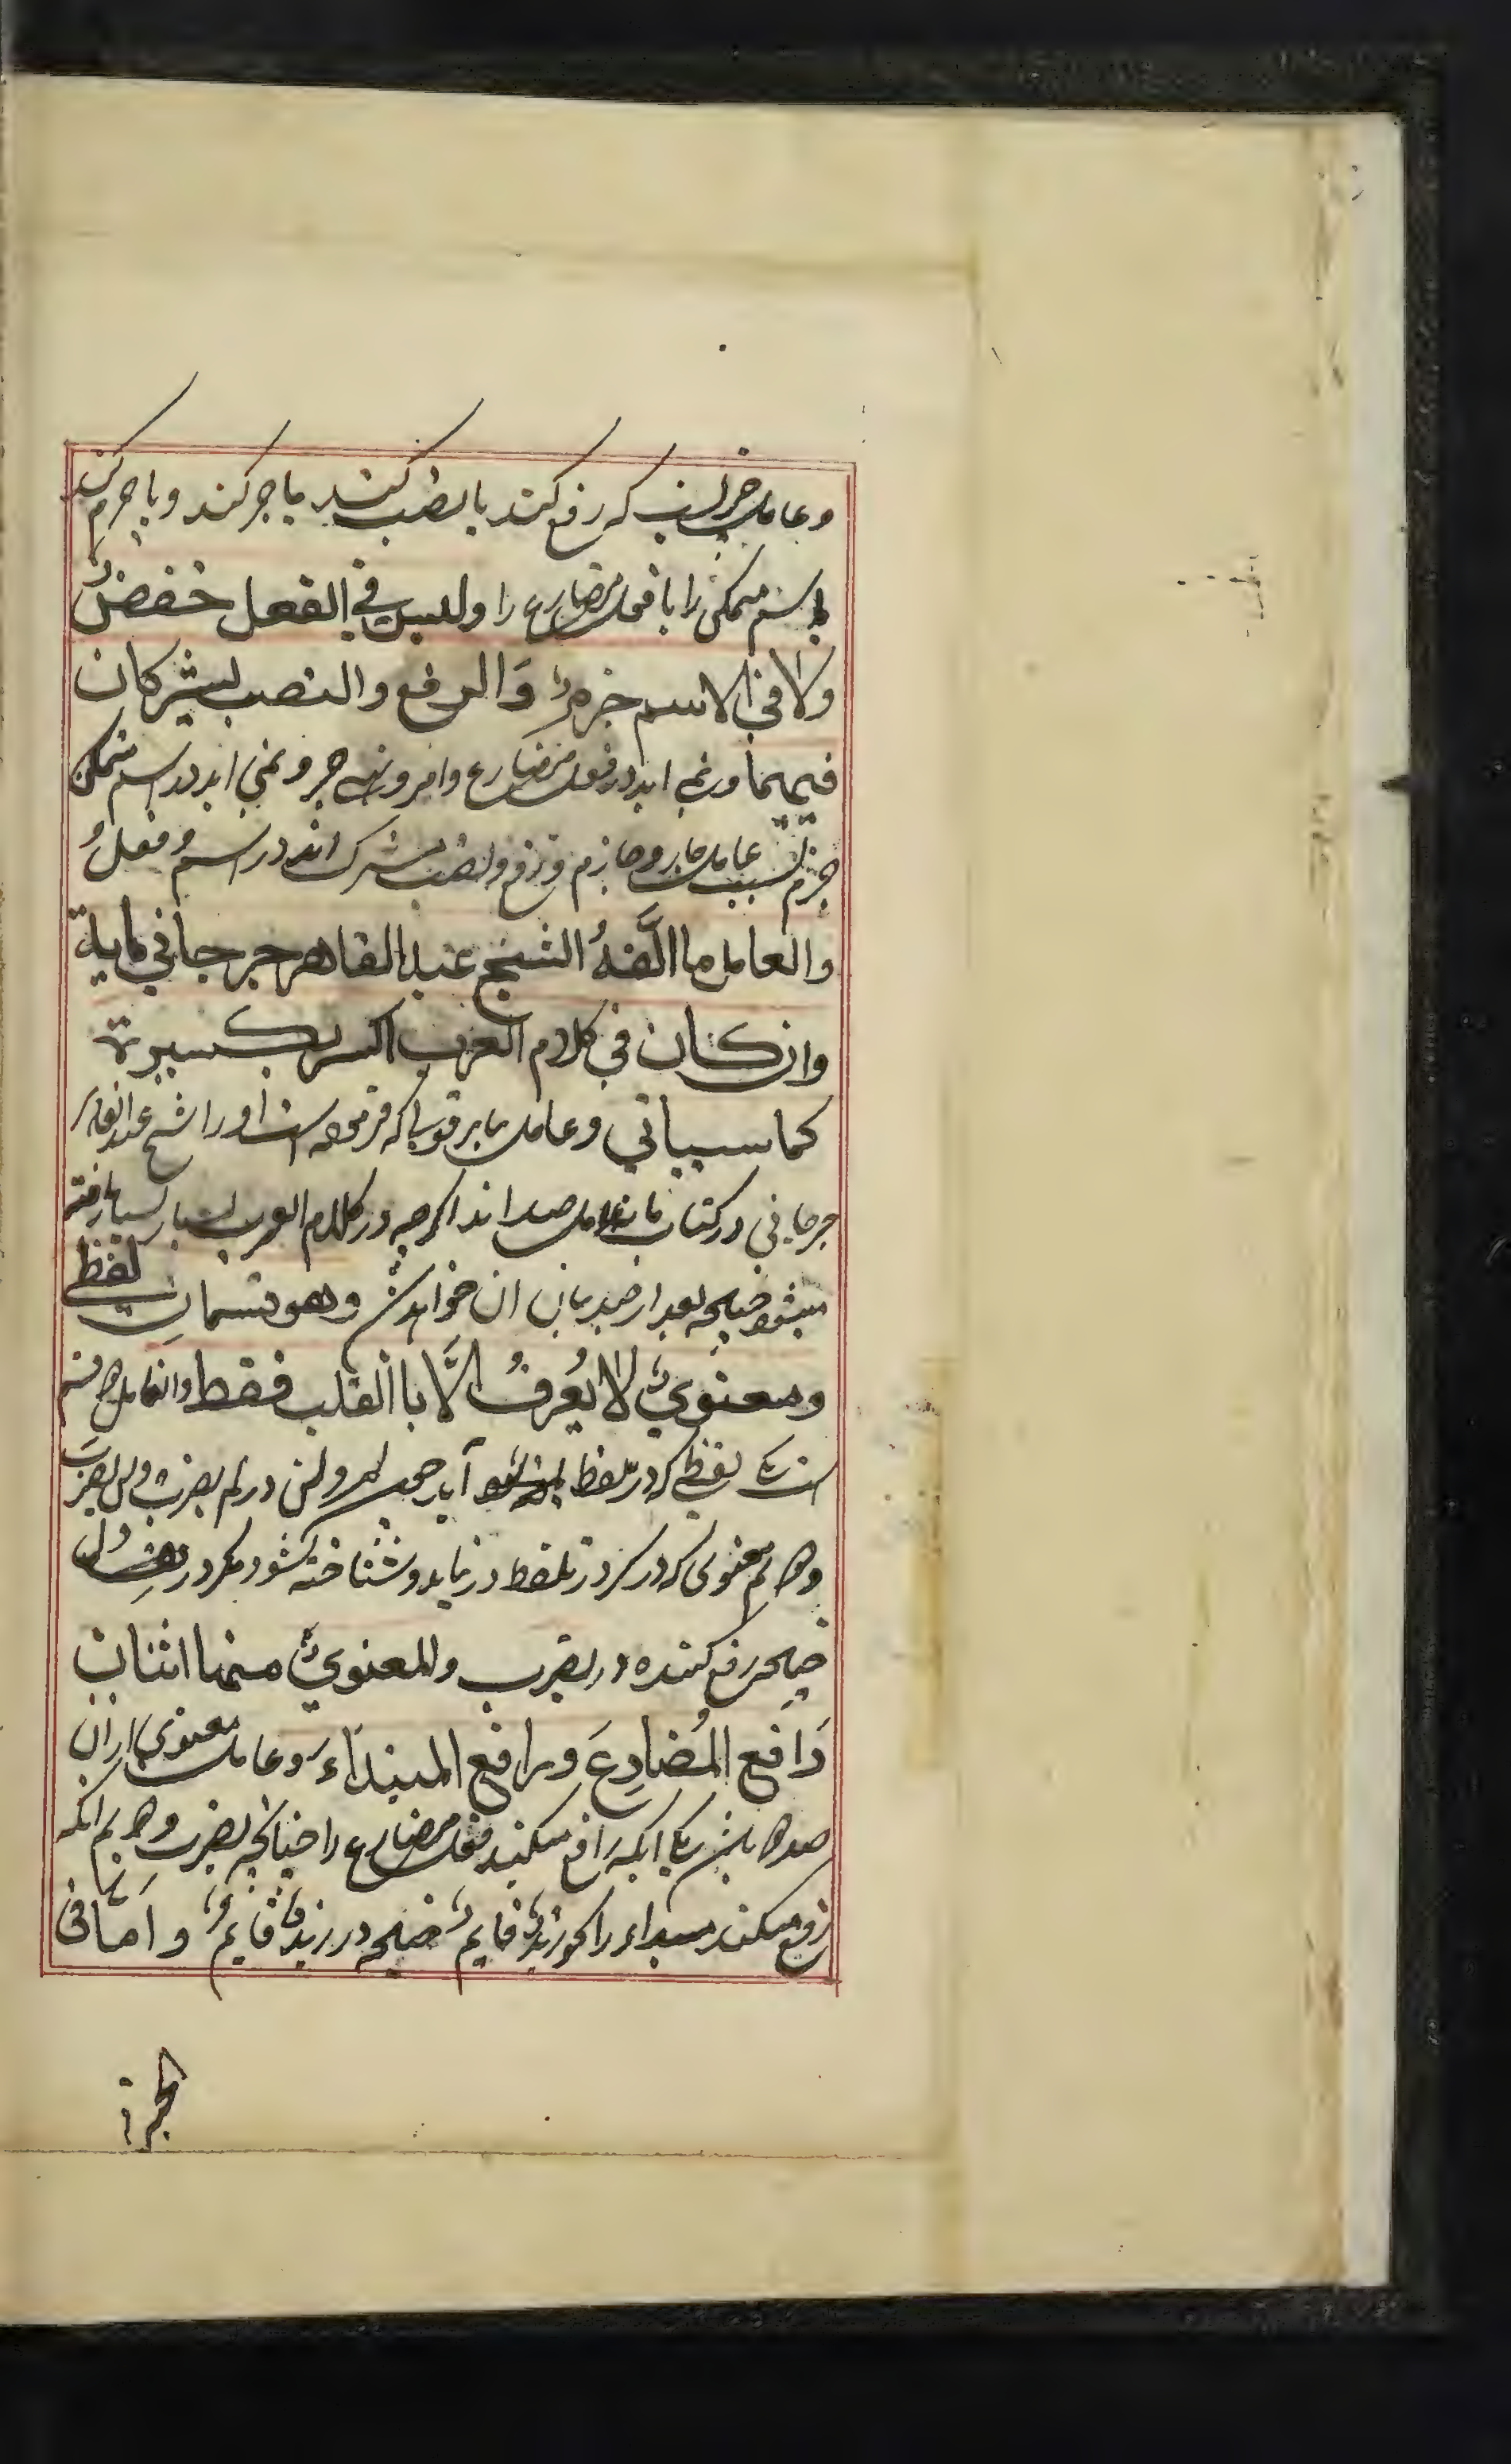 و عامل چیزیست که رفع کند یا نصب کند یا جر کند و یا جزم کند
اسم متمکن را یا فعل مضارع را ولیس في الفعل خفضٌ
ولا في الاسم جزمٌ وَالرفع والنصب یشترکان
فیهما و نمی اید در فعل مضارع جر و نمی اید در اسم متمکن
جزم بسبب عامل جار و جازم و رفع و نصب مشترک اند در اسم و فعل
والعامل ما الَّفهُ الشیخ عبد القاهر جرجاني مایة
وان کان في کلام العرب اکثر کثیرة
کما سیاتي و عامل بابر قولی که است او را شیخ عبد القاهر
جرجاني در کتاب مائة عامل صد اند اکرچه در کلام العرب بسیار بسیار یافته
میشود چنانچه بعد از چند بیان ان خواهد شد وهو قسمان لفظي
ومعنويٌ لا یُعرفُ الَّا با القلب فقط و ان عامل دو قسم
است یکی لفظی که در تلفظ آید چون لم و لن در لم یضرب و لن یضربَ
دوم معنوی که در تلفظ در نیاید و شناخته نشود مکر در دل
چنانچه رفع کننده در یضرب والمعنويُ منها اثنان
رَافع المُضارِعَ ورافع المبتداءَ و عامل معنوی از ان
صد دو باشد یکی انکه رفع میکند فعل مضارع را چنانچه یضرب و دوم انکه
رفع میکند مبتداء را نحو زیدٌ قایمٌ چنانچه در زیدٌ قایمٌ و امّا في